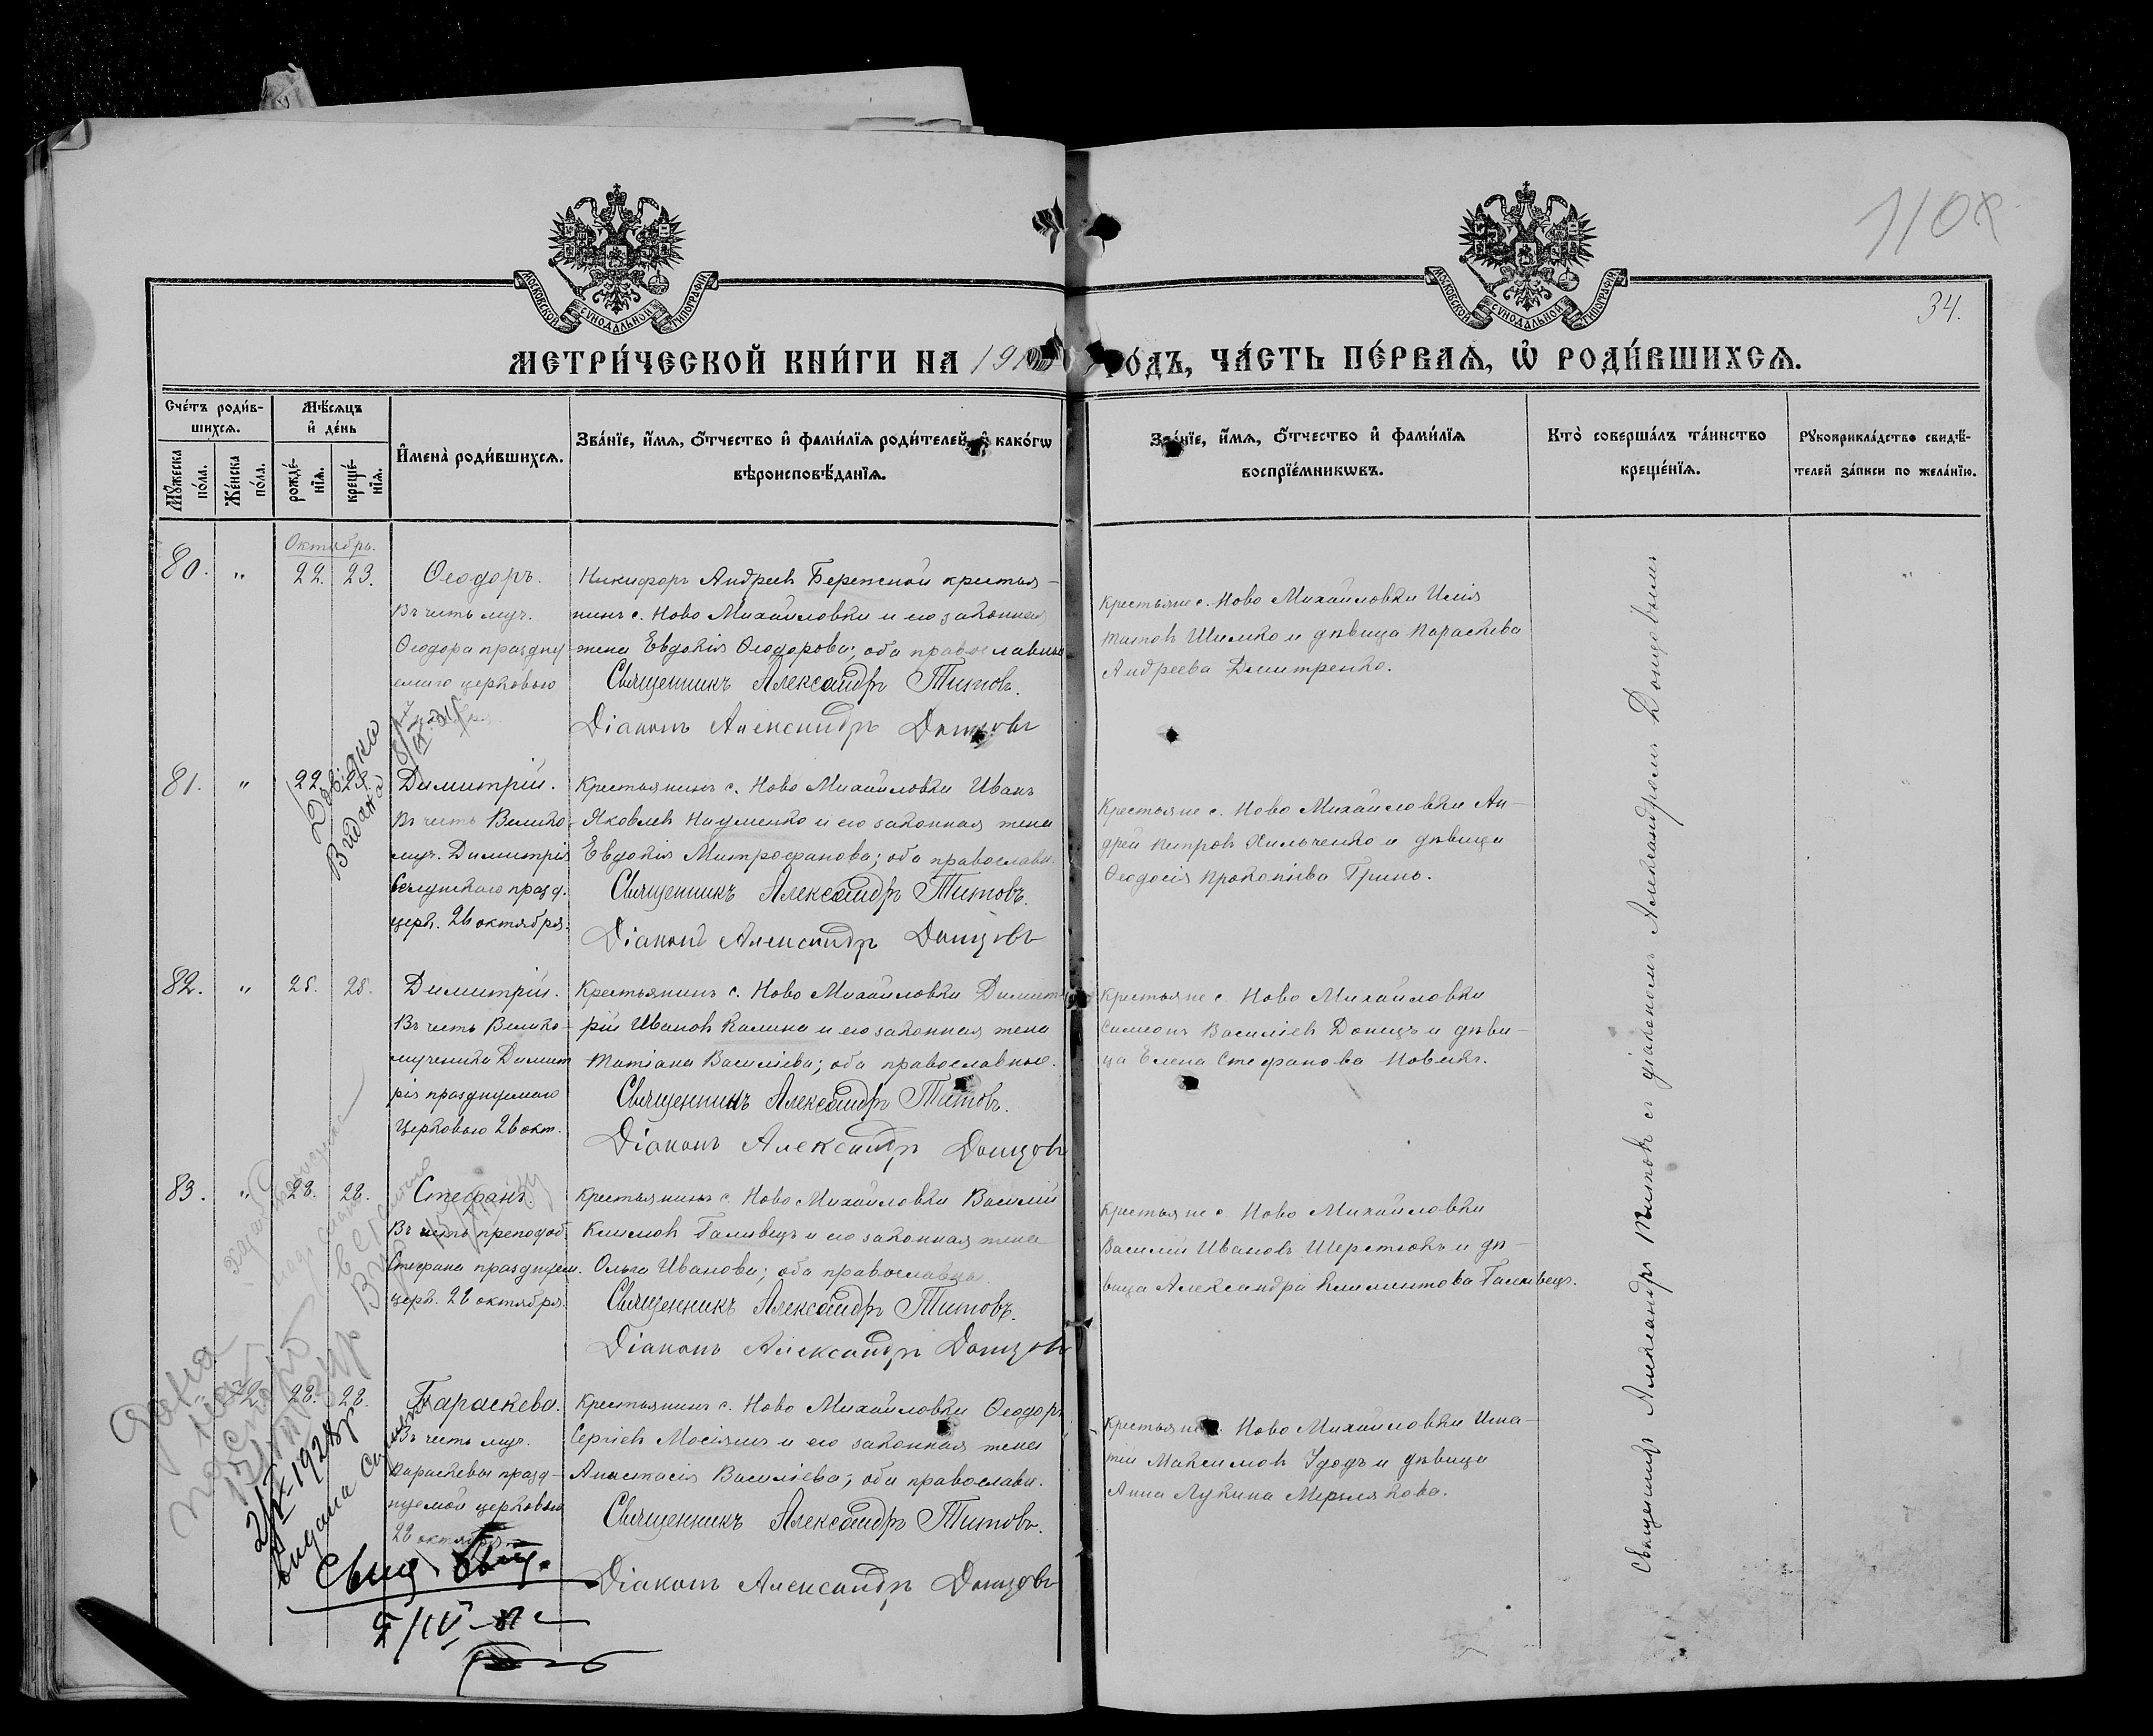 МОСКОВСКОЙ СѴНОДАЛЬНОЙ ТИПОГРАФІИ
МОСКОВСКОЙ СѴНОДАЛЬНОЙ ТИПОГРАФІИ
34.
МЕТРИ́ЧЕСКОЙ КНИ́ГИ НА 191
ГО́ДЪ, ЧА́СТЬ ПЕ́РВАѦ, Ѡ҆ РОДИ́ВШИХСѦ.
Сче́тъ роди́в-
шихсѧ.
Мѣ́сѧцъ
и҆ де́нь
Мꙋ́жеска
по́ла.
Же́нска
по́ла.
рожде́-
нїѧ.
креще́-
нїѧ.
И҆мена̀ роди́вшихсѧ.
Зва́нїе, и҆́мѧ, ѻ҆́тчество и҆ фами́лїѧ роди́телей, и҆ како́гѡ
вѣроисповѣ́данїѧ.
Зва́нїе, и҆́мѧ, ѻ҆́тчество и҆ фами́лїѧ
воспрїе́мникѡвъ.
Кто̀ соверша́лъ та́инство
креще́нїѧ.
Рꙋкоприкла́дство свидѣ́-
телей за́писи по жела́нїю.
Октябрь.
80. " 22. 23.
Ѳеодоръ.
Въ честь муч.
Ѳеодора праздну
емаго церковью
Никифоръ Андреевъ Бережной крестья-
нинъ с. Ново Михайловки и его законная
жена Евдокія Ѳеодорова; оба православные
Священникъ Александръ Титовъ.
Діаконъ Александръ Донцовъ
Крестьяне с. Ново Михайловки Илія
Шимко и дѣвица Параскева
Андреева Дмитренко.
81. " 22.
Димитрій.
Въ честь Велико-
муч. Димитрія
Селунскаго празд.
церк. 26 октября.
Крестьянинъ с. Ново Михайловки Иванъ
Яковлевъ Науменко и его законная жена
Евдокія Митрофанова; оба православн.
Священникъ Александръ Титовъ.
Діаконъ Александръ Донцовъ
Крестьяне с. Ново Михайловки Ан-
дрей Петровъ Хильченко и дѣвица
Ѳеодосія Прокопіева Гринь.
82. " 25. 25.
Димитрій.
Въ честь Велико-
мученика Димит
рія празднуемаго
Церковью 26 окт.
Крестьянинъ с. Ново Михайловки Димит-
рій Ивановъ Калина и его законная жена
Татіана Василіева; оба православные.
Священникъ Александръ Титовъ.
Діаконъ Александръ Донцовъ
Крестьяне с. Ново Михайловки
Симеонъ Василіевъ Донецъ и дѣви-
ца Елена Стефанова Новакъ.
83. " 28. 28.
Стефанъ.
Въ честь преподоб.
Стефана празднуем.
церк. 28 октября.
Крестьянинъ с. Ново Михайловки Василій
Климовъ Галивецъ и его законная жена
Ольга Иванова; оба православны.
Священникъ Александръ Титовъ.
Діаконъ Александръ Донцовъ
Крестьяне с. Ново Михайловки
Василій Ивановъ Шерстюкъ и дѣ-
вица Александра Климентова Галивецъ.
28. 28.
Параскева.
Въ честь муч.
Параскевы празд-
нуемой церковью
28 октября.
Крестьянинъ с. Ново Михайловки Ѳеодоръ
Сергіевъ Мосіяшъ и его законная жена
Анастасія Василіева; оба православн.
Священникъ Александръ Титовъ.
Діаконъ Александръ Донцовъ
Крестьяне с. Ново Михайловки Игна-
тій Максимовъ Удодъ и дѣвица
Анна Лукина Мерзлякова.
Священникъ Александръ Титовъ съ діакономъ Александромъ Донцовымъ
Довідка
Видана